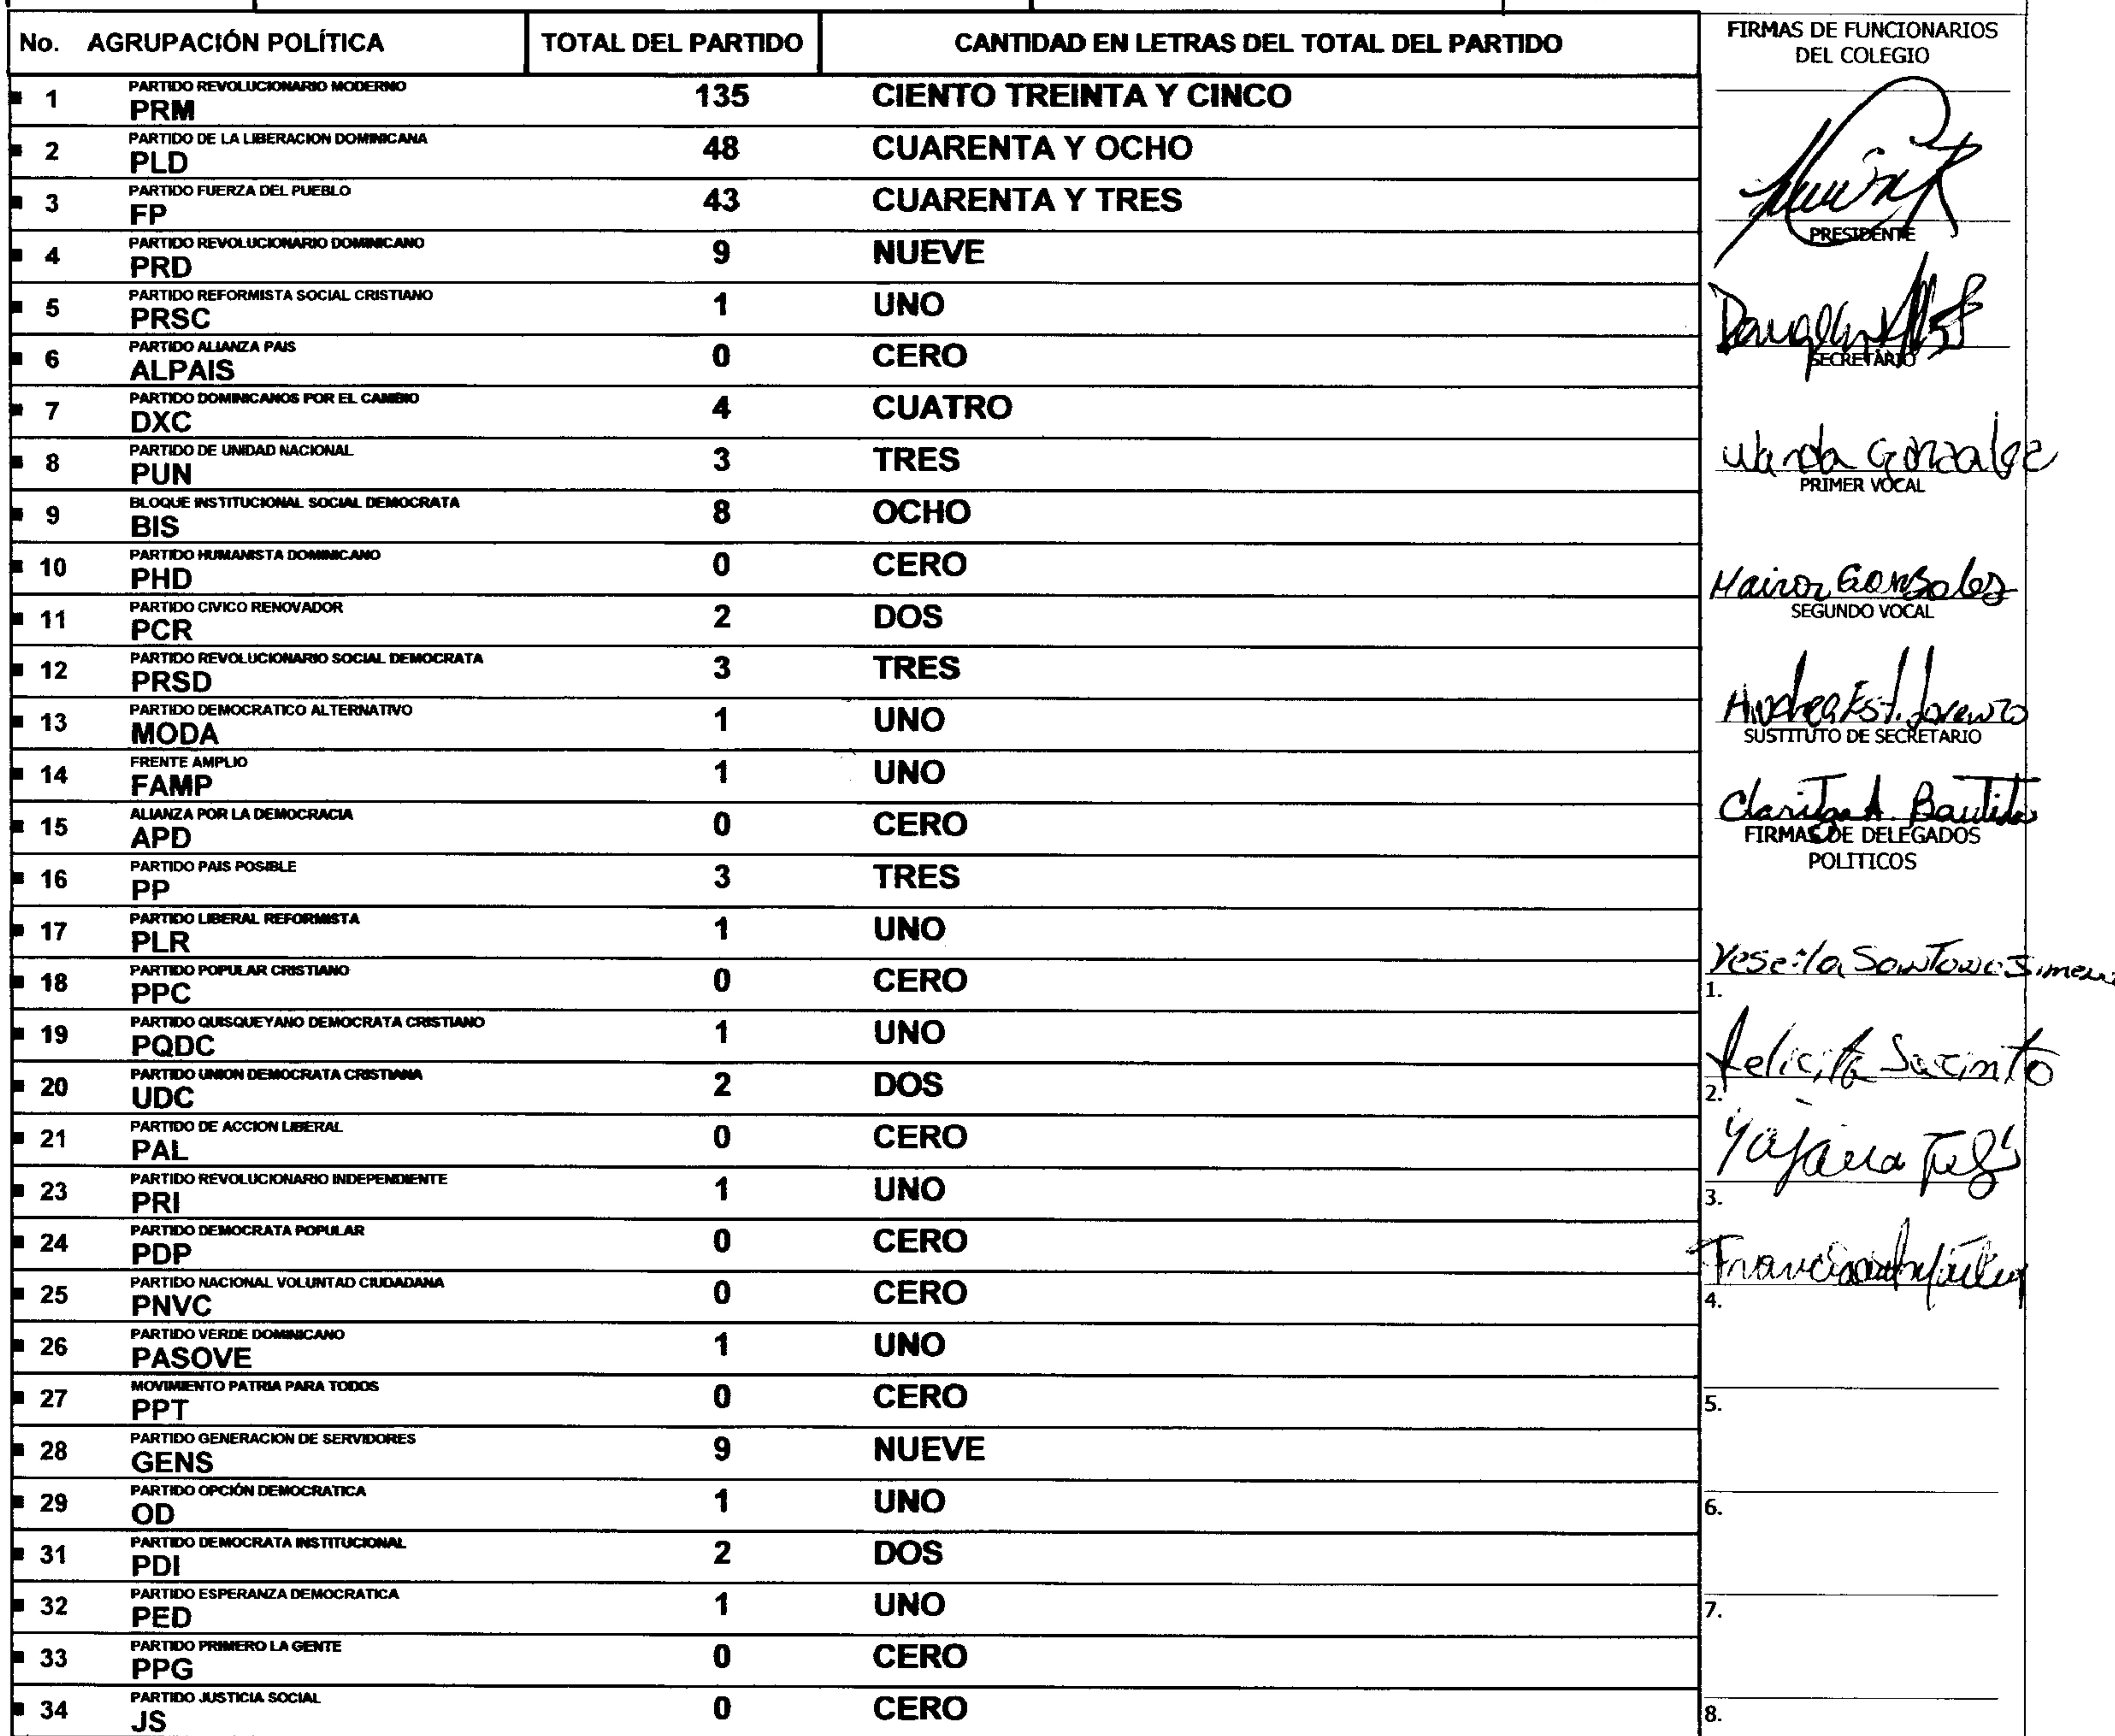 No. AGRUPACIÓN POLÍTICA TOTAL DEL PARTIDO CANTIDAD EN LETRAS DEL TOTAL DEL PARTIDO
1 PARTIDO REVOLUCIONARIO MODERNO
PRM 135 CIENTO TREINTA Y CINCO
2 PARTIDO DE LA LIBERACION DOMINICANA
PLD 48 CUARENTA Y OCHO
3 PARTIDO FUERZA DEL PUEBLO
FP 43 CUARENTA Y TRES
4 PARTIDO REVOLUCIONARIO DOMINICANO
PRD 9 NUEVE
5 PARTIDO REFORMISTA SOCIAL CRISTIANO
PRSC 1 UNO
6 PARTIDO ALIANZA PAIS
ALPAIS 0 CERO
7 PARTIDO DOMINICANOS POR EL CAMBIO
DXC 4 CUATRO
8 PARTIDO DE UNIDAD NACIONAL
PUN 3 TRES
9 BLOQUE INSTITUCIONAL SOCIAL DEMOCRATA
BIS 8 OCHO
10 PARTIDO HUMANISTA DOMINICANO
PHD 0 CERO
11 PARTIDO CIVICO RENOVADOR
PCR 2 DOS
12 PARTIDO REVOLUCIONARIO SOCIAL DEMOCRATA
PRSD 3 TRES
13 PARTIDO DEMOCRATICO ALTERNATIVO
MODA 1 UNO
14 FRENTE AMPLIO
FAMP 1 UNO
15 ALIANZA POR LA DEMOCRACIA
APD 0 CERO
16 PARTIDO PAIS POSIBLE
PP 3 TRES
17 PARTIDO LIBERAL REFORMISTA
PLR 1 UNO
18 PARTIDO POPULAR CRISTIANO
PPC 0 CERO
19 PARTIDO QUISQUEYANO DEMOCRATA CRISTIANO
PQDC 1 UNO
20 PARTIDO UNION DEMOCRATA CRISTIANA
UDC 2 DOS
21 PARTIDO DE ACCION LIBERAL
PAL 0 CERO
23 PARTIDO REVOLUCIONARIO INDEPENDIENTE
PRI 1 UNO
24 PARTIDO DEMOCRATA POPULAR
PDP 0 CERO
25 PARTIDO NACIONAL VOLUNTAD CIUDADANA
PNVC 0 CERO
26 PARTIDO VERDE DOMINICANO
PASOVE 1 UNO
27 MOVIMIENTO PATRIA PARA TODOS
PPT 0 CERO
28 PARTIDO GENERACION DE SERVIDORES
GENS 9 NUEVE
29 PARTIDO OPCIÓN DEMOCRATICA
OD 1 UNO
31 PARTIDO DEMOCRATA INSTITUCIONAL
PDI 2 DOS
32 PARTIDO ESPERANZA DEMOCRATICA
PED 1 UNO
33 PARTIDO PRIMERO LA GENTE
PPG 0 CERO
34 PARTIDO JUSTICIA SOCIAL
JS 0 CERO
FIRMAS DE FUNCIONARIOS
DEL COLEGIO
PRESIDENTE
SECRETARIO
Wanda Gonzalez
PRIMER VOCAL
Gonsalez
SEGUNDO VOCAL
Andrea Est. Lorenzo
SUSTITUTO DE SECRETARIO
A. Bautista
FIRMAS DE DELEGADOS
POLITICOS
1.
2.
3.
4.
5.
6.
7.
8.